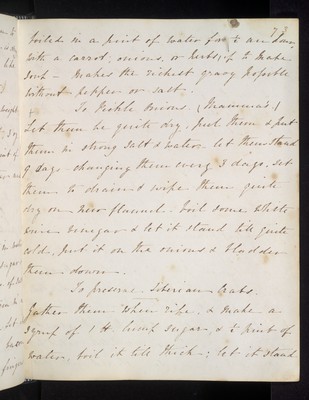 73
boiled in a pint of water for ½ an hour
with a carrot, onions, or herbs; if to make
Soup - makes the richest gravy possible
without pepper or salt -
To Pickle Onions (Mamma's)
Let them be quite dry, peel them & put
them in strong Salt & water let them stand
9 days changing them every 3 days, set
them to drain & wipe them quite
dry on new flannel. boil some White
wine Vinegar & let it stand till quite
cold, put it on the onions & bladder
them down.
To preserve Siberian Crabs.
Gather them when ripe, & make a
Syrup of 1 lb lump Sugar, & ½ pint of
water, boil it till thick; let it stand